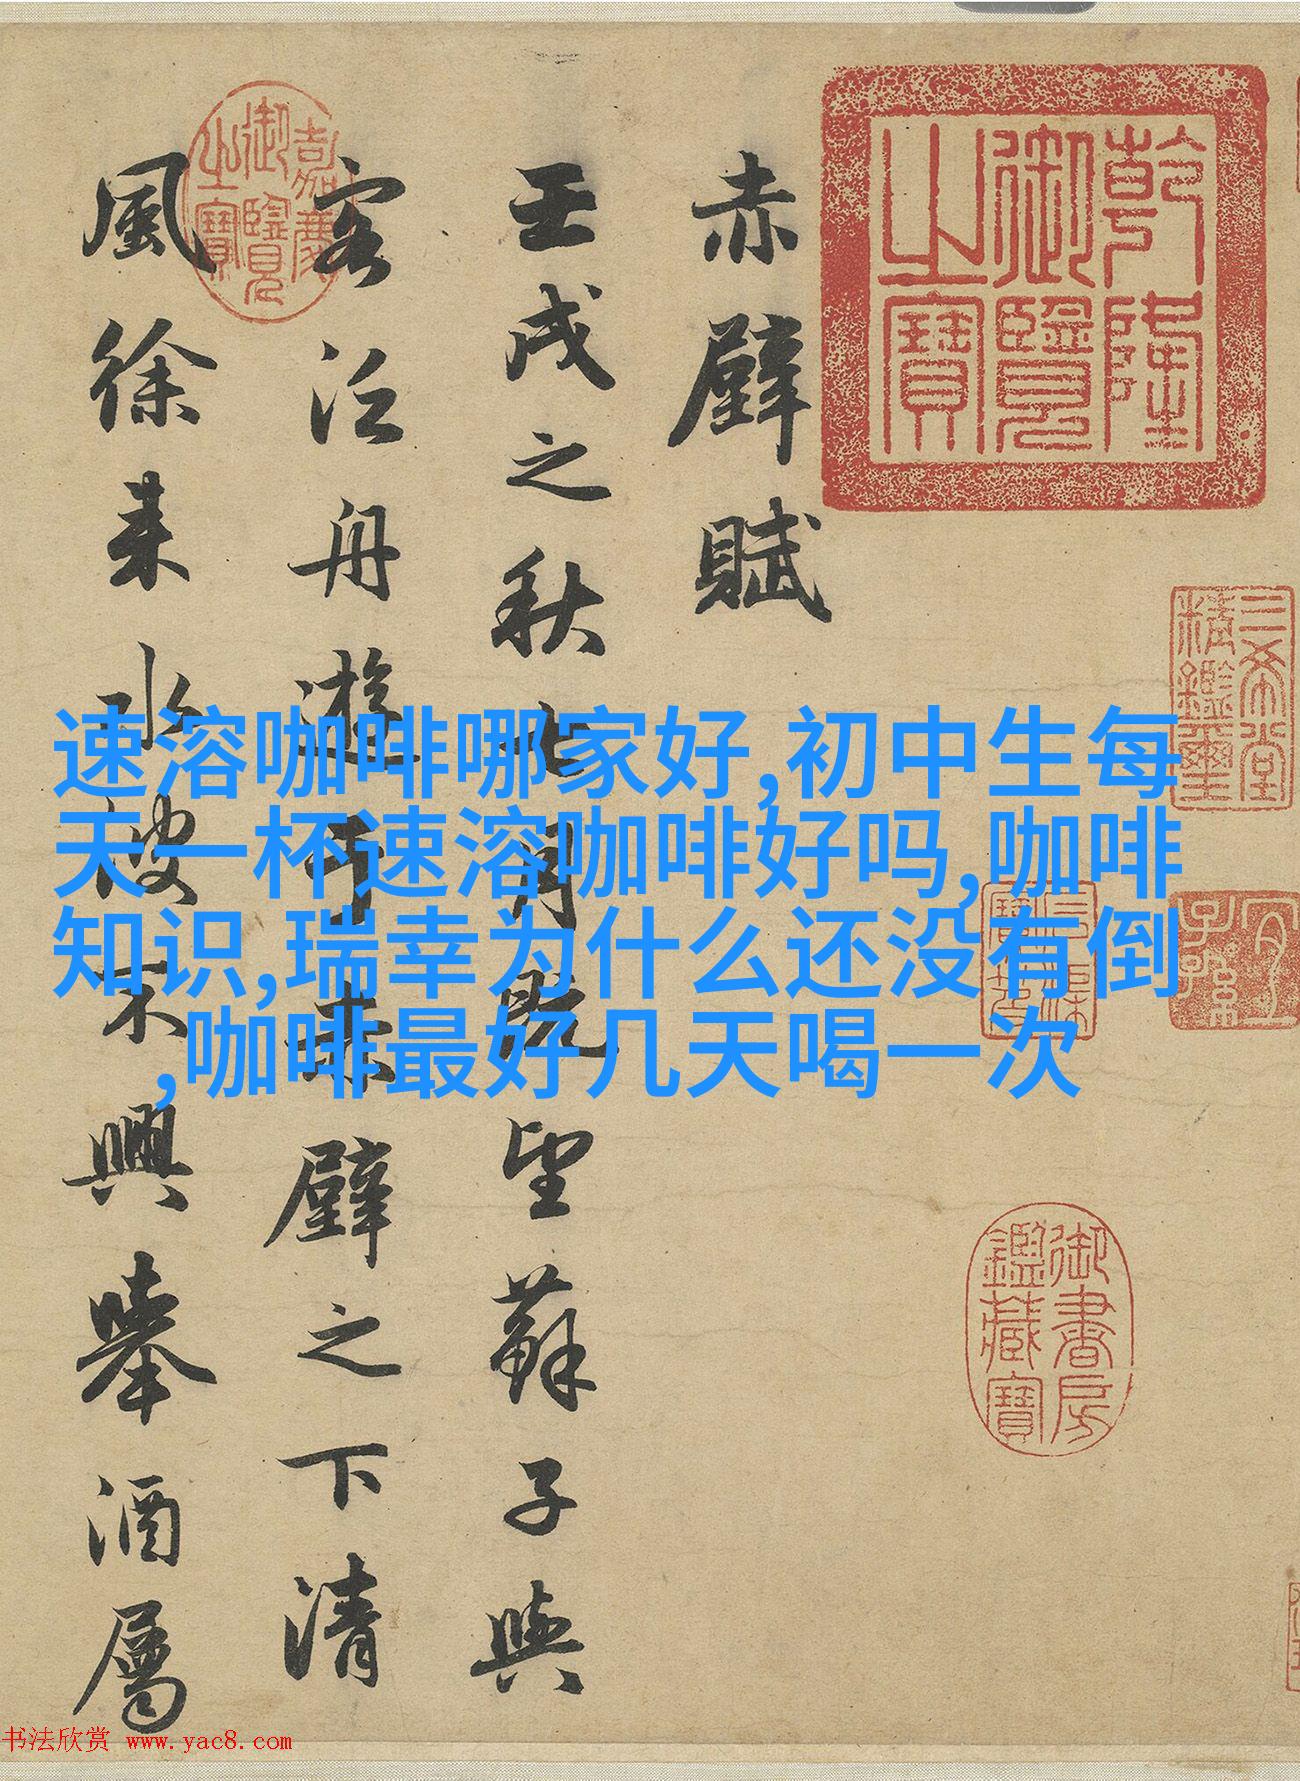 赤壁賦
壬戌之秋七月既望蘇子與
客泛舟遊于赤壁之下清
風徐来水波不興舉酒屬
速溶咖啡哪家好,初中生每
天一杯速溶咖啡好吗,咖啡
知识,瑞幸为什么还没有倒
,咖啡最好几天喝一次
乾隆
御覽
之寶
嘉慶
御覽
之寶
三希堂
精鑑璽
宜
子孫
御書房
鑑藏寶
书法欣赏 www.yac8.com